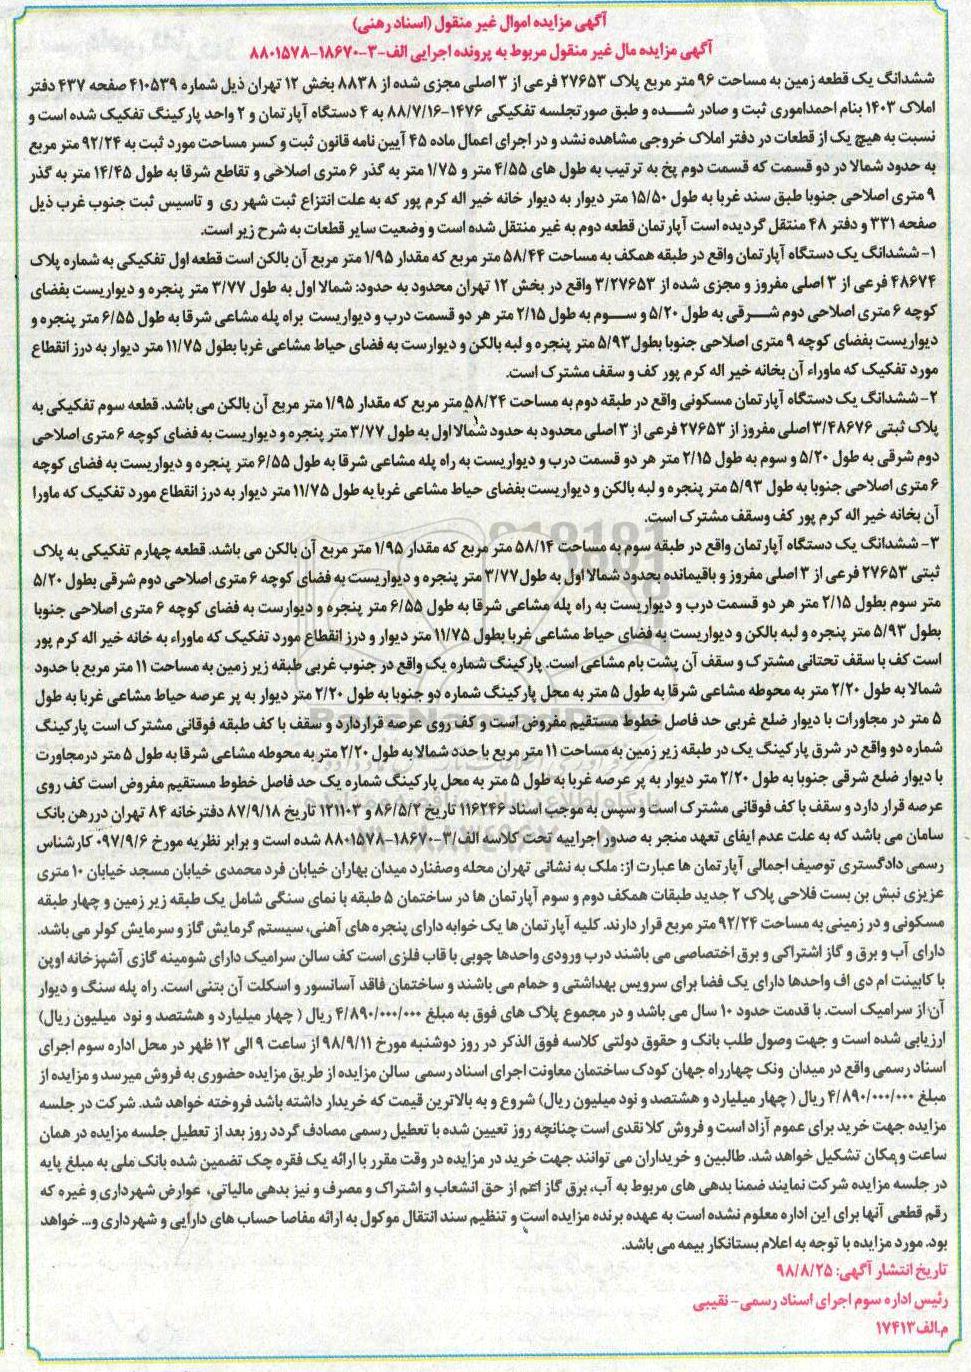 آگهی مزایده اموال غیر منقول (اسناد رهنی)
آگهی مزایده مال غیر منقول مربوط به پرونده اجرایی الف-۳-۱۸۶۷۰-۸۸۰۱۵۷۸
ششدانگ یک قطعه زمین به مساحت ۹۶ متر مربع پلاک ۲۷۶۵۳ فرعی از ۳ اصلی مجزی شده از ۸۸۳۸ بخش ۱۲ تهران ذیل شماره ۴۱۰۵۳۹ صفحه ۴۳۷ دفتر
املاک ۱۴۰۳ بنام احمداموری ثبت و صادر شده و طبق صورتجلسه تفکیکی ۱۴۷۶-۸۸/۷/۱۶ به ۴ دستگاه آپارتمان و ۲ واحد پارکینگ تفکیک شده است و
نسبت به هیچ یک از قطعات در دفتر املاک خروجی مشاهده نشد و در اجرای اعمال ماده ۴۵ آیین نامه قانون ثبت و کسر مساحت مورد ثبت به ۹۲/۲۴ متر مربع
به حدود شمالا در دو قسمت که قسمت دوم پخ به ترتیب به طول های ۴/۵۵ متر و ۱/۷۵ متر به گذر ۶ متری اصلاحی و تقاطع شرقا به طول ۱۴/۴۵ متر به گذر
۹ متری اصلاحی جنوبا طبق سند غربا به طول ۱۵/۵۰ متر دیوار به دیوار خانه خیر اله کرم پور که به علت انتزاع ثبت شهر ری و تاسیس ثبت جنوب غرب ذیل
صفحه ۳۳۱ و دفتر ۴۸ منتقل گردیده است آپارتمان قطعه دوم به غیر منتقل شده است و وضعیت سایر قطعات به شرح زیر است.
۱- ششدانگ یک دستگاه آپارتمان واقع در طبقه همکف به مساحت ۵۸/۴۴ متر مربع که مقدار ۱/۹۵ متر مربع آن بالکن است قطعه اول تفکیکی به شماره پلاک
۴۸۶۷۴ فرعی از ۳ اصلی مفروز و مجزی شده از ۳/۲۷۶۵۳ واقع در بخش ۱۲ تهران محدود به حدود: شمالا اول به طول ۳/۷۷ متر پنجره و دیواریست بفضای
کوچه ۶ متری اصلاحی دوم شرقی به طول ۵/۲۰ و سوم به طول ۲/۱۵ متر هر دو قسمت درب و دیواریست براه پله مشاعی شرقا به طول ۶/۵۵ متر پنجره و
دیواریست بفضای کوچه ۹ متری اصلاحی جنوبا بطول ۵/۹۳ متر پنجره و لبه بالکن و دیوارست به فضای حیاط مشاعی غربا بطول ۱۱/۷۵ متر دیوار به درز انقطاع
مورد تفکیک که ماوراء آن بخانه خیر اله کرم پور کف و سقف مشترک است.
۲- ششدانگ یک دستگاه آپارتمان مسکونی واقع در طبقه دوم به مساحت ۵۸/۲۴ متر مربع که مقدار ۱/۹۵ متر مربع آن بالکن می باشد. قطعه سوم تفکیکی به
پلاک ثبتی ۳/۴۸۶۷۶ اصلی مفروز از ۲۷۶۵۳ فرعی از ۳ اصلی محدود به حدود شمالا اول به طول ۳/۷۷ متر پنجره و دیواریست به فضای کوچه ۶ متری اصلاحی
دوم شرقی به طول ۵/۲۰ و سوم به طول ۲/۱۵ متر هر دو قسمت درب و دیواریست به راه پله مشاعی شرقا به طول ۶/۵۵ متر پنجره و دیواریست به فضای کوچه
۶ متری اصلاحی جنوبا به طول ۵/۹۳ متر پنجره و لبه بالکن و دیواریست بفضای حیاط مشاعی غربا به طول ۱۱/۷۵ متر دیوار به درز انقطاع مورد تفکیک که ماورا
آن بخانه خیر اله کرم پور کف وسقف مشترک است.
۳- ششدانگ یک دستگاه آپارتمان واقع در طبقه سوم به مساحت ۵۸/۱۴ متر مربع که مقدار ۱/۹۵ متر مربع آن بالکن می باشد. قطعه چهارم تفکیکی به پلاک
ثبتی ۲۷۶۵۳ فرعی از ۳ اصلی مفروز و باقیمانده بحدود شمالا اول به طول ۳/۷۷ متر پنجره و دیواریست به فضای کوچه ۶ متری اصلاحی دوم شرقی بطول ۵/۲۰
متر سوم بطول ۲/۱۵ متر هر دو قسمت درب و دیواریست به راه پله مشاعی شرقا به طول ۶/۵۵ متر پنجره و دیوارست به فضای کوچه ۶ متری اصلاحی جنوبا
بطول ۵/۹۳ متر پنجره و لبه بالکن و دیواریست به فضای حیاط مشاعی غربا بطول ۱۱/۷۵ متر دیوار و درز انقطاع مورد تفکیک که ماوراء به خانه خیر اله کرم پور
است کف با سقف تحتانی مشترک و سقف آن پشت بام مشاعی است. پارکینگ شماره یک واقع در جنوب غربی طبقه زیر زمین به مساحت ۱۱ متر مربع با حدود
شمالا به طول ۲/۲۰ متر به محوطه مشاعی شرقا به طول ۵ متر به محل پارکینگ شماره دو جنوبا به طول ۲/۲۰ متر دیوار به پر عرصه حیاط مشاعی غربا به طول
۵ متر در مجاورات با دیوار ضلع غربی حد فاصل خطوط مستقیم مفروض است و کف روی عرصه قراردارد و سقف با کف طبقه فوقانی مشترک است پارکینگ
شماره دو واقع در شرق پارکینگ یک در طبقه زیر زمین به مساحت ۱۱ متر مربع با حدد شمالا به طول ۲/۲۰ متر به محوطه مشاعی شرقا به طول ۵ متر درمجاورت
با دیوار ضلع شرقی جنوبا به طول ۲/۲۰ متر دیوار به پر عرصه غربا به طول ۵ متر به محل پارکینگ شماره یک حد فاصل خطوط مستقیم مفروض است کف روی
عرصه قرار دارد و سقف با کف فوقانی مشترک است و سپس به موجب اسناد ۱۱۶۲۴۶ تاریخ ۸۶/۵/۲ و ۱۲۱۱۰۳ تاریخ ۸۷/۹/۱۸ دفترخانه ۸۴ تهران دررهن بانک
سامان می باشد که به علت عدم ایفای تعهد منجر به صدور اجراییه تحت کلاسه الف/۳-۱۸۶۷۰-۸۸۰۱۵۷۸ شده است و برابر نظریه مورخ ۰۹۷/۹/۶ کارشناس
رسمی دادگستری توصیف اجمالی آپارتمان ها عبارت از: ملک به نشانی تهران محله وصفنارد میدان بهاران خیابان فرد محمدی خیابان مسجد خیابان ۱۰ متری
عزیزی نبش بن بست فلاحی پلاک ۲ جدید طبقات همکف دوم و سوم آپارتمان ها در ساختمان ۵ طبقه با نمای سنگی شامل یک طبقه زیر زمین و چهار طبقه
مسکونی و در زمینی به مساحت ۹۲/۲۴ متر مربع قرار دارند. کلیه آپارتمان ها یک خوابه دارای پنجره های آهنی، سیستم گرمایش گاز و سرمایش کولر می باشد.
دارای آب و برق و گاز اشتراکی و برق اختصاصی می باشند درب ورودی واحدها چوبی با قاب فلزی است کف سالن سرامیک دارای شومینه گازی آشپزخانه اوپن
با کابینت ام دی اف واحدها دارای یک فضا برای سرویس بهداشتی و حمام می باشند و ساختمان فاقد آسانسور و اسکلت آن بتنی است. راه پله سنگ و دیوار
آن از سرامیک است. با قدمت حدود ۱۰ سال می باشد و در مجموع پلاک های فوق به مبلغ ۴/۸۹۰/۰۰۰/۰۰۰ ریال ( چهار میلیارد و هشتصد و نود میلیون ریال)
ارزیابی شده است و جهت وصول طلب بانک و حقوق دولتی کلاسه فوق الذکر در روز دوشنبه مورخ ۹۸/۹/۱۱ از ساعت ۹ الی ۱۲ ظهر در محل اداره سوم اجرای
اسناد رسمی واقع در میدان ونک چهارراه جهان کودک ساختمان معاونت اجرای اسناد رسمی سالن مزایده از طریق مزایده حضوری به فروش میرسد و مزایده از
مبلغ ۴/۸۹۰/۰۰۰/۰۰۰ ریال ( چهار میلیارد و هشتصد و نود میلیون ریال) شروع و به بالاترین قیمت که خریدار داشته باشد فروخته خواهد شد. شرکت در جلسه
مزایده جهت خرید برای عموم آزاد است و فروش کلا نقدی است چنانچه روز تعیین شده با تعطیل رسمی مصادف گردد روز بعد از تعطیل جلسه مزایده در همان
ساعت و مکان تشکیل خواهد شد. طالبین و خریداران می توانند جهت خرید در مزایده در وقت مقرر با ارائه یک فقره چک تضمین شده بانک ملی به مبلغ پایه
در جلسه مزایده شرکت نمایند ضمنا بدهی های مربوط به آب، برق گاز اعم از حق انشعاب و اشتراک و مصرف و نیز بدهی مالیاتی، عوارض شهرداری و غیره که
رقم قطعی آنها برای این اداره معلوم نشده است به عهده برنده مزایده است و تنظیم سند انتقال موکول به ارائه مفاصا حساب های دارایی و شهرداری و... خواهد
بود. مورد مزایده با توجه به اعلام بستانکار بیمه می باشد.
تاریخ انتشار آگهی: ۹۸/۸/۲۵
رئیس اداره سوم اجرای اسناد رسمی- نقیبی
م.الف۱۷۴۱۳